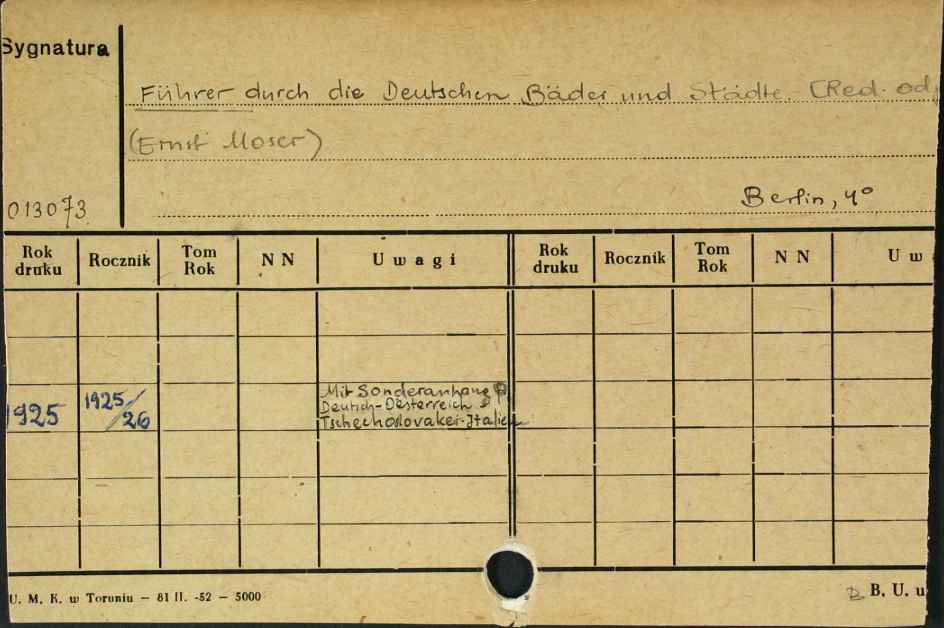 Sygnatura
Führer durch die Deutschen Bäder und Städte. [Red. od.
(Ernst Moser)
013073
Berlin, 4°
Rok druku Rocznik Tom Rok NN Uwagi Rok druku Rocznik Tom Rok NN Uw
1925 1925/26 Mit Sonderanhang
Deutsch-Oesterreich
Tschechoslovakei-Italien
U. M. K. w Toruniu — 81 II. -52 — 5000
B. U. u